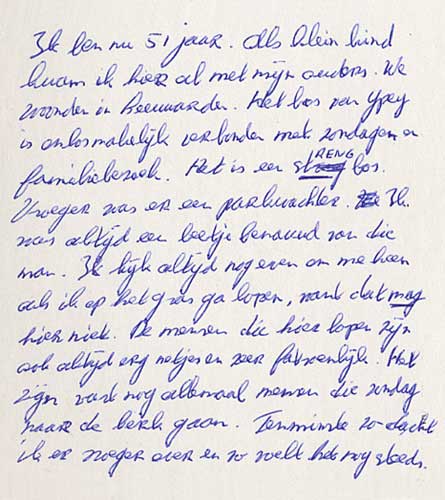 Ik ben nu 51 jaar. Als klein kind
kwam ik hier al met mijn ouders. We
woonden in Leeuwarden. Het bos van Ypey
is onlosmakelijk verbonden met zondagen en
familiebezoek. Het is een streng RENG bos.
Vroeger was er een parkwachter. Ik
was altijd een beetje benauwd van die
man. Ik kijk altijd nog even om me heen
als ik op het gras ga lopen, want dat mag
hier niet. De mensen die hier lopen zijn
ook altijd erg netjes en zeer fatsoenlijk. Het
zijn vast nog allemaal mensen die zondag
naar de kerk gaan. Tenminste zo dacht
ik er vroeger over en zo voelt het nog steeds.